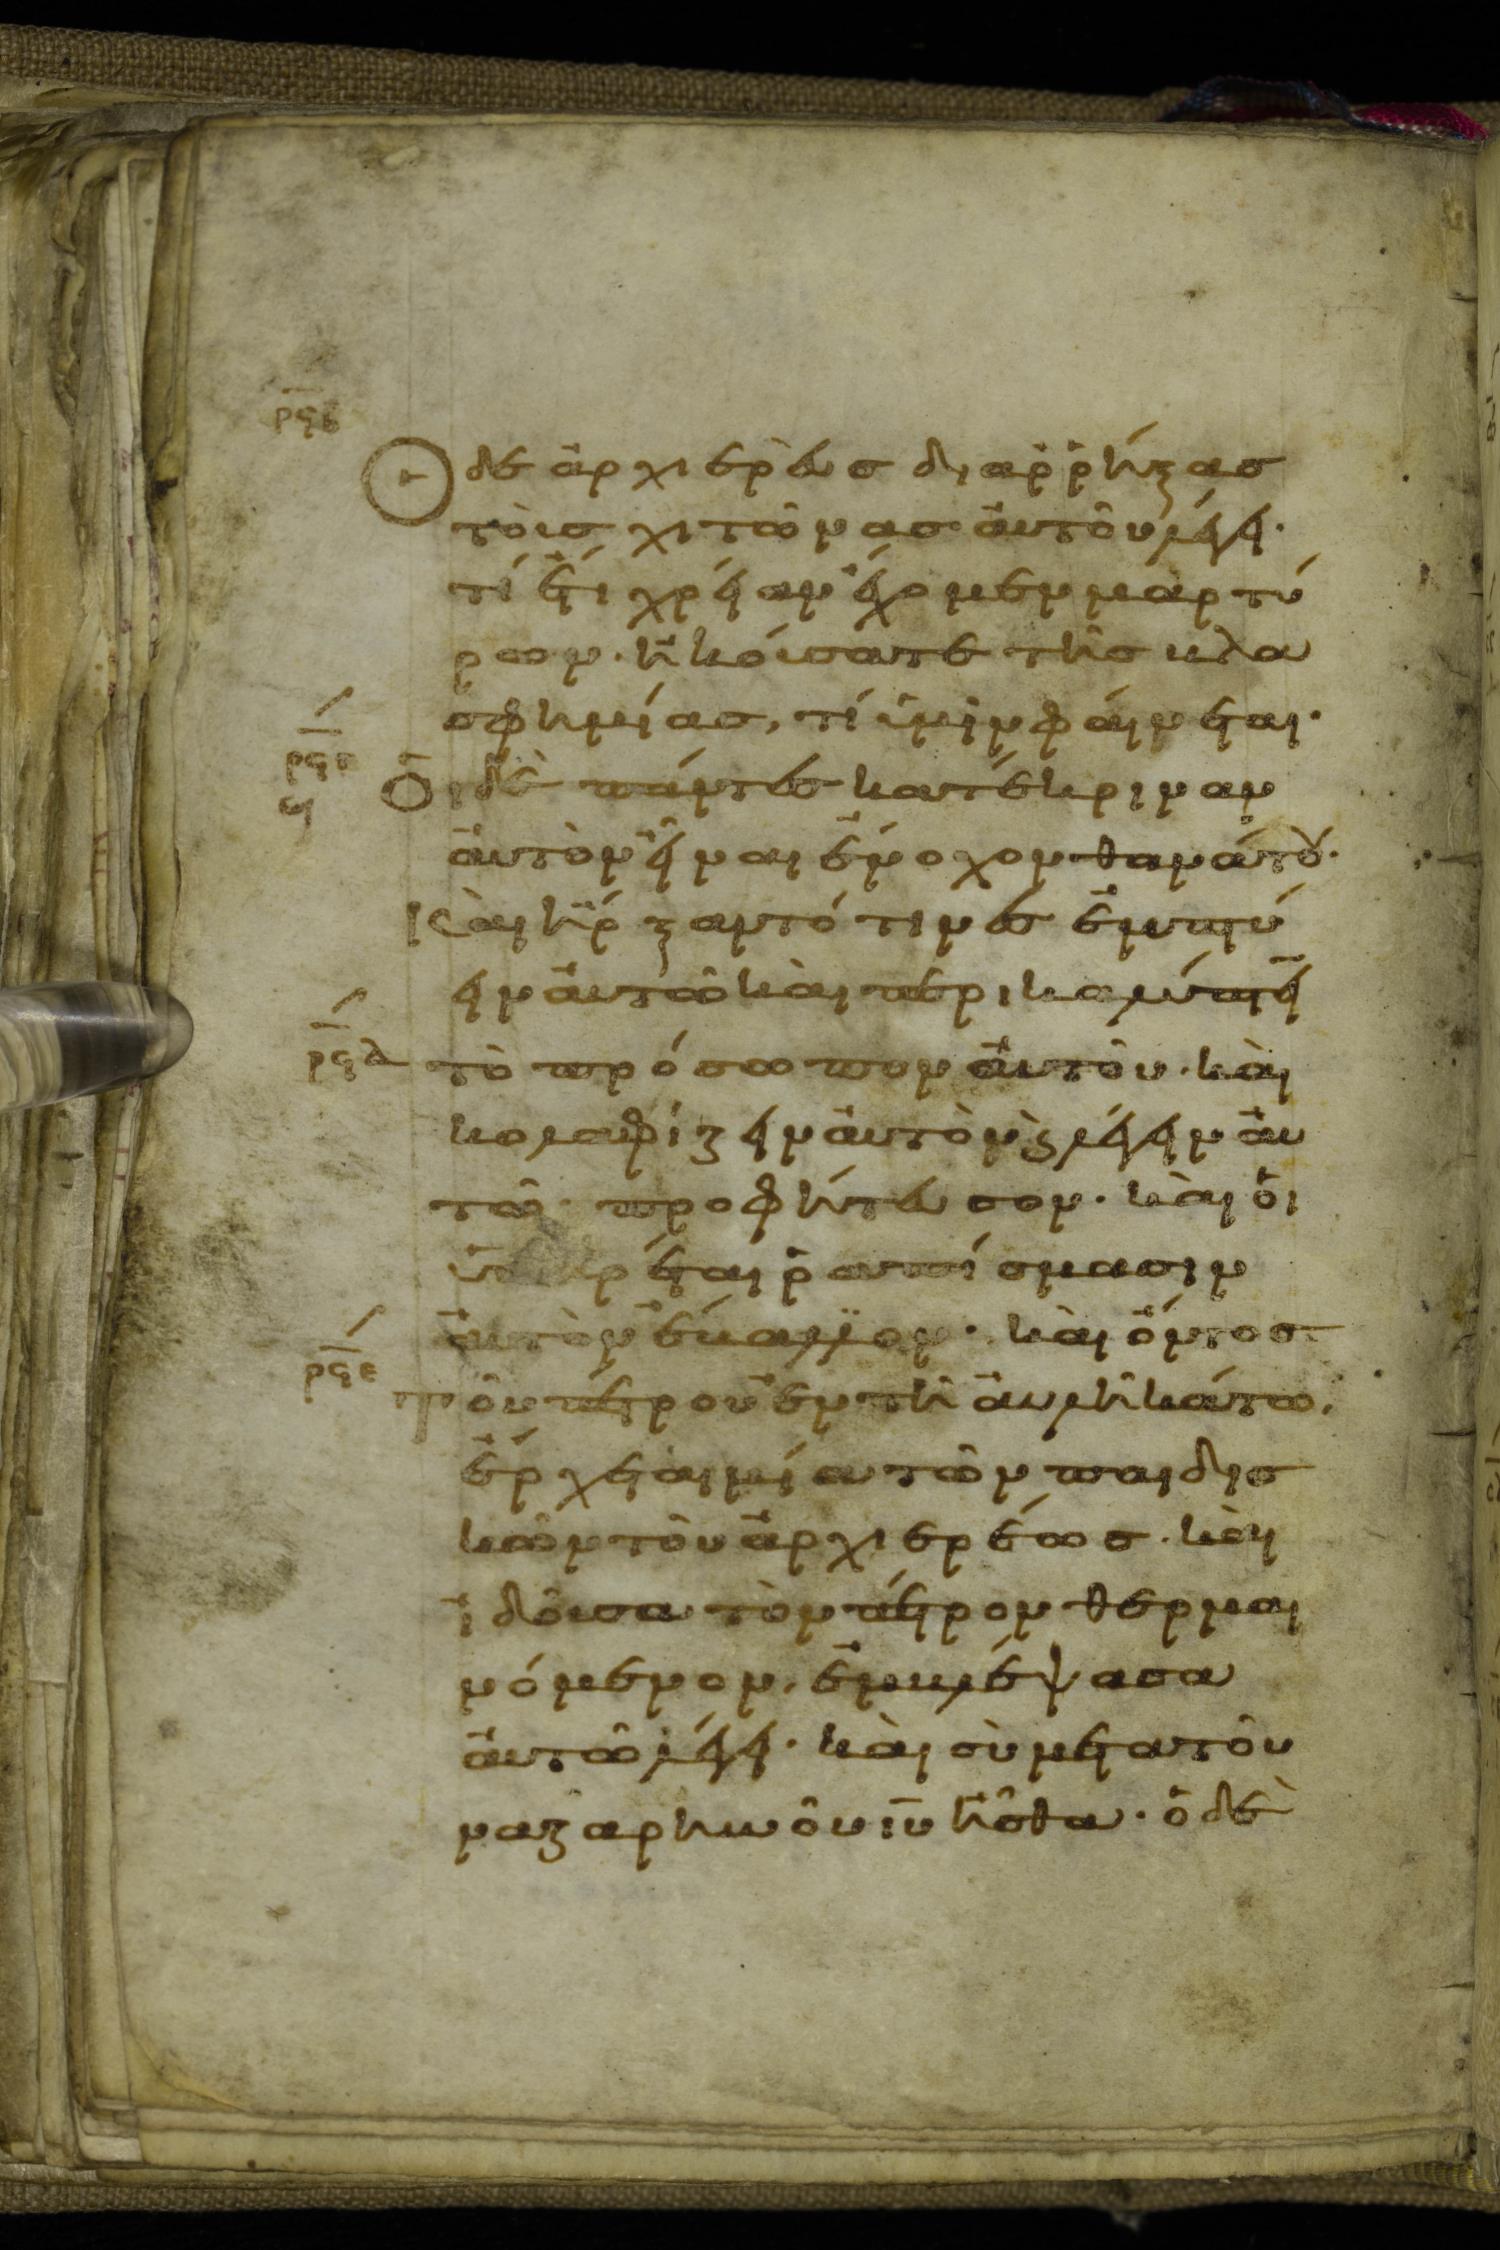 ρϥβ
Ὁ δὲ ἀρχιερεὺσ διαρρήξασ
τοὺσ χιτῶνασ αὐτοῦ λέγει·
τί ἔτι χρείαν ἔχομεν μαρτύ
ρων· ἠκούσατε τῆσ βλα
σφημίασ, τί ὑμῖν φαίνεται·
ρϥγ
Ὁι δὲ πάντεσ κατέκριναν
αὐτὸν εἶναι ἔνοχον θανάτου·
Καὶ ἤρξαντό τινεσ ἐμπτύ
ειν αὐτῶ καὶ περικαλύπτειν
ρϥδ
τὸ πρόσωπον αὐτοῦ· καὶ
κολαφίζειν αὐτὸν ϗ λέγειν αὐ
τῶ προφήτευσον· καὶ οἱ
ὑπηρέται ῥαπίσμασιν
αὐτὸν ἔβαλλον· καὶ ὄντοσ
ρϥε
τοῦ πέτρου ἐν τῆ αὐλῆ κάτω,
ἔρχεται μία τῶν παιδισ
κῶν τοῦ ἀρχιερέωσ· καὶ
ἰδοῦσα τὸν πέτρον θερμαι
νόμενον, ἐμβλέψασα
αὐτῶ λέγει· καὶ σὺ μετὰ τοῦ
ναζαρηνοῦ ιυ ἦσθα· ὁ δὲ